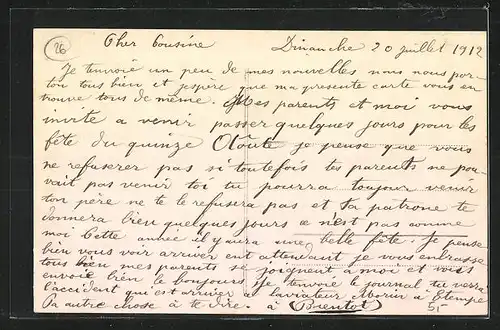 26
Cher Cousine Dimanche 20 juillet 1912
Je t'envoie un peu de mes nouvelles nous nous por-
ton tous bien et j'espère que ma presente carte vous en
trouve tous de même. Mes parents et moi vous
invite a venir passer quelques jours pour les
fête du quinze Oloûte je pense que vous
ne refuserez pas si toutefois tes parents ne pou-
vait pas venir toi tu pourra toujour venir
ton père ne te le refusera pas et ta patrone te
donnera bien quelques jours ce n'est pas comme
moi Cette année il y aura une belle fête. Je pense
bien vous voir arriver ent attendant je vous embrasse
tous bien mes parents se joignent a moi et vous
envoie bien le bonjours je t'envoie le journal tu verra
l'accident qui est arriver a l'aviateur Morin a Etampe
Pa autre chose à te dire. à Brentot 5,-